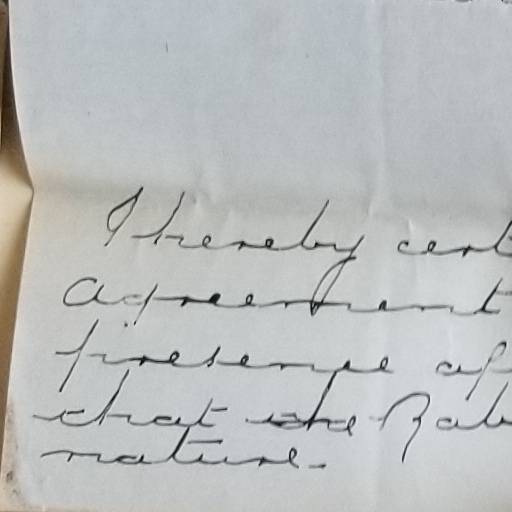 I hereby cert
Agreement
presence of
that the Rab
nature.